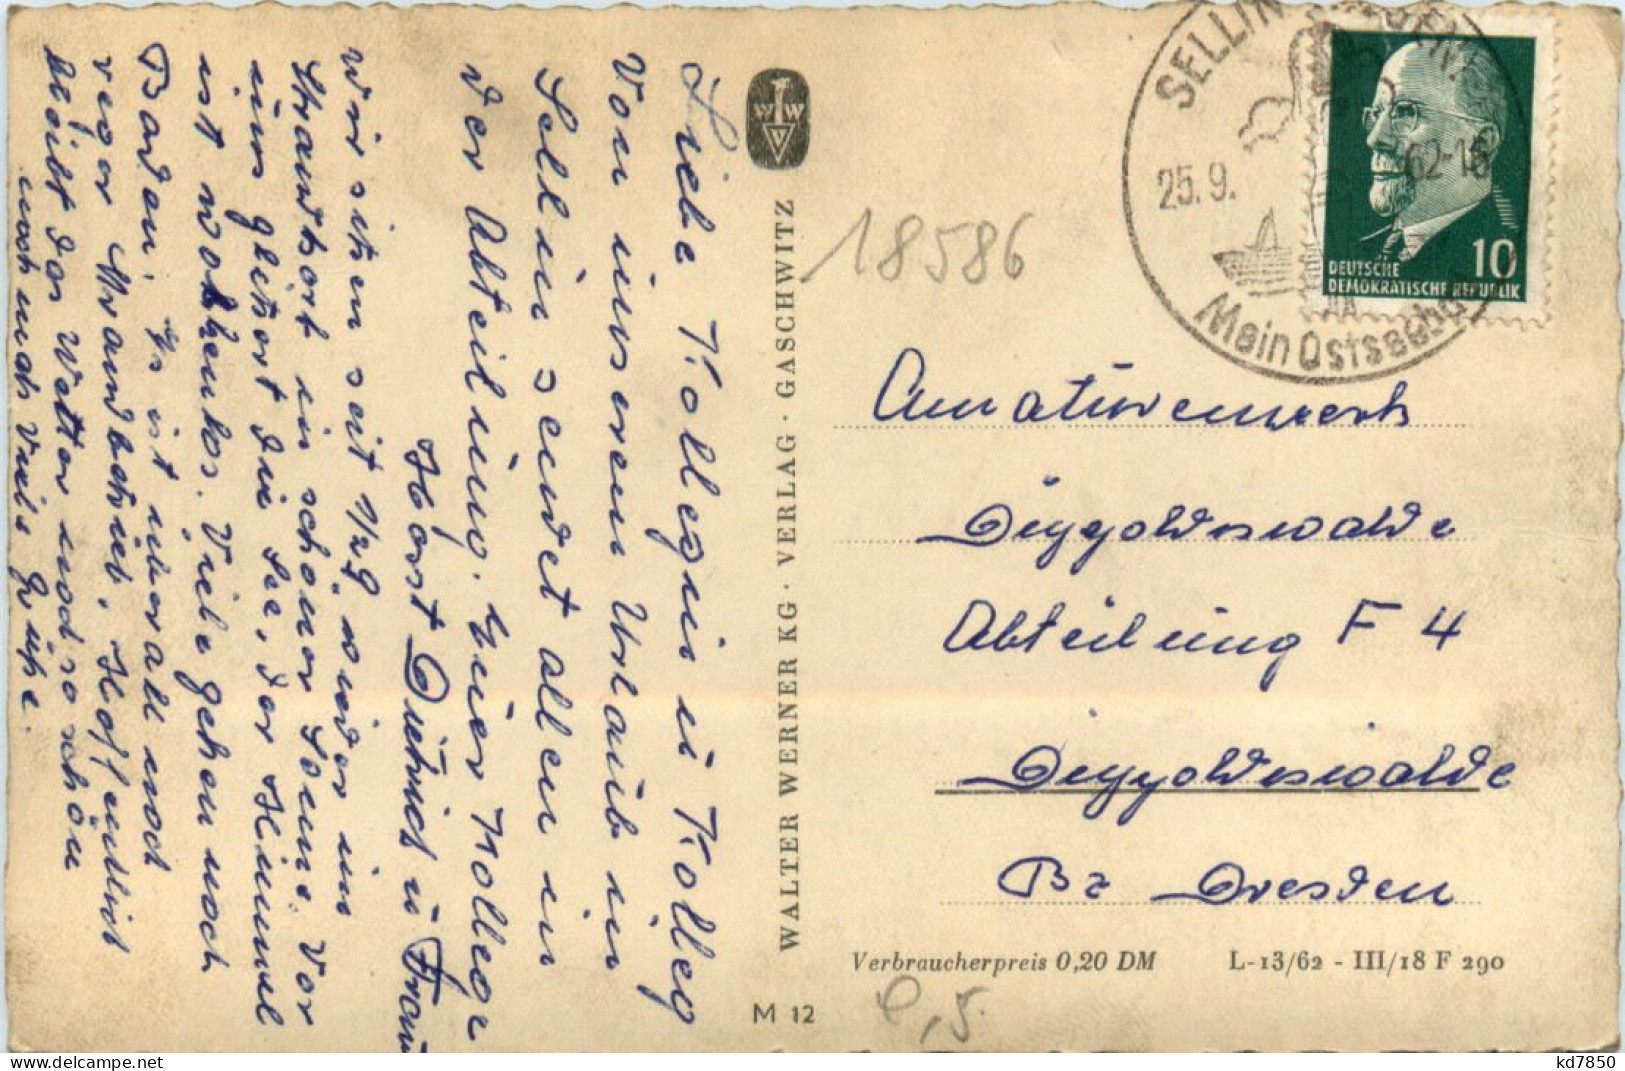 Liebe Kollegin u Kolleg
Von unseren Urlaub in
Sellin sendet allen in
der Abteilung. Euer Kollege
Horst Dietrich u Frau
Wir sitzen seit 1/2 9 wieder im
Strandkorb in schöner Sonne. Vor
uns glitzert die See, der Himmel
ist wolkenlos. Viele gehen noch
Baden. Es ist überall noch
reger Strandbetrieb. Hoffentlich
bleibt das Wetter noch so schön
nochmals viele Grüße.
WVW
WALTER WERNER KG · VERLAG · GASCHWITZ
18586
SELLIN
25.9.62-16
Mein Ostseebad
10
DEUTSCHE
DEMOKRATISCHE REPUBLIK
Armaturenwerk
Dippoldiswalde
Abteilung F 4
Dippoldiswalde
Bz Dresden
Verbraucherpreis 0,20 DM L-13/62 - III/18 F 290
M 12
kd7850